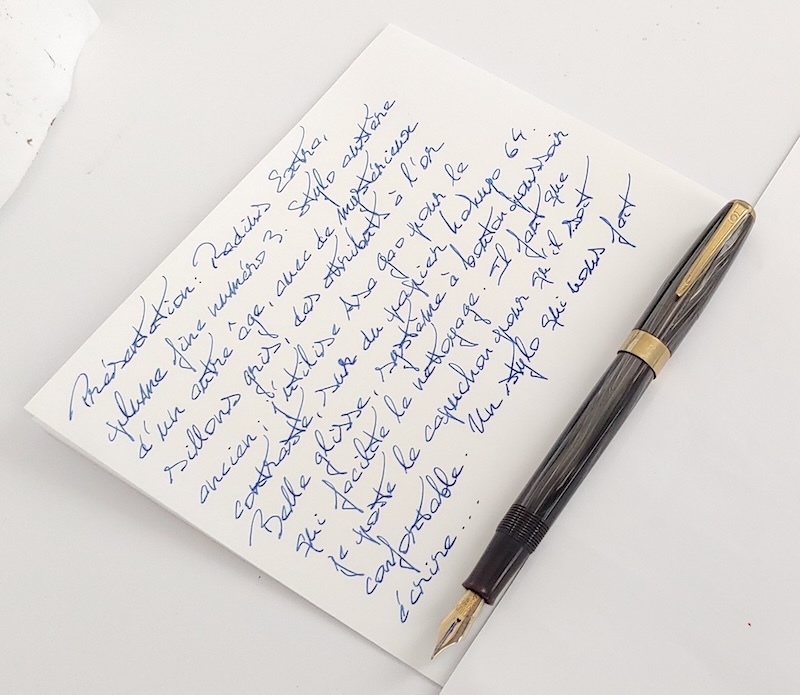 Présentation: Radius Extra,
plume fine numéro 3. Stylo austère
d'un autre âge, avec de mystérieux
sillons gris, des attributs à l'or
ancien; j'utilise sse gao pour le
contraste, sur du papier hokugo 64.
Belle glisse, système à bouton poussoir
qui facilite le nettoyage. Il faut que
je poste le capuchon pour qu'il soit
confortable. Un stylo qui nous fait
écrire...